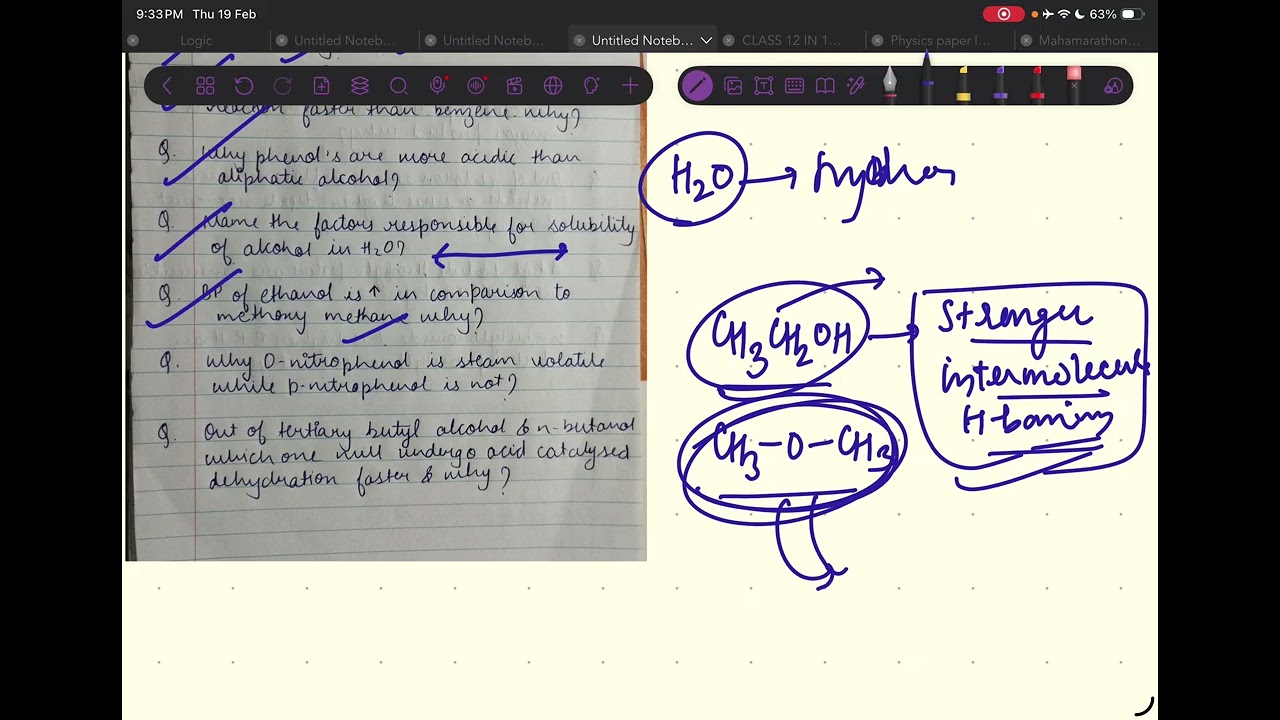 9:33 PM Thu 19 Feb
63%
Logic
Untitled Noteb...
Untitled Noteb...
Untitled Noteb...
CLASS 12 IN 1...
Physics paper l...
Mahamarathon...
reaction faster than benzene why?
Q. Why phenol's are more acidic than
aliphatic alcohol?
Q. Name the factors responsible for solubility
of alcohol in H₂O?
Q. BP of ethanol is ↑ in comparison to
methoxy methane why?
Q. Why O-nitrophenol is steam volatile
while p-nitrophenol is not?
Q. Out of tertiary butyl alcohol & n-butanol
which one will undergo acid catalysed
dehydration faster & why?
H₂O →
CH₃CH₂OH →
Stronger
intermolecul
H-boning
CH₃-O-CH₃